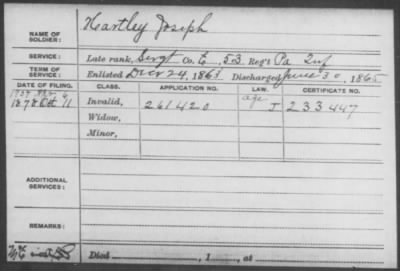 NAME OF SOLDIER: Hartley Joseph
SERVICE: Late rank, Sergt Co. E, 53 Reg't Pa Inf
TERM OF SERVICE: Enlisted Decr 24, 1863 Discharged June 30, 1865
DATE OF FILING. CLASS. APPLICATION NO. LAW. CERTIFICATE NO.
1878 Oct 11 Invalid, 261420 age J 233447
Widow,
Minor,
ADDITIONAL SERVICES:
REMARKS:
Died , 1 , at